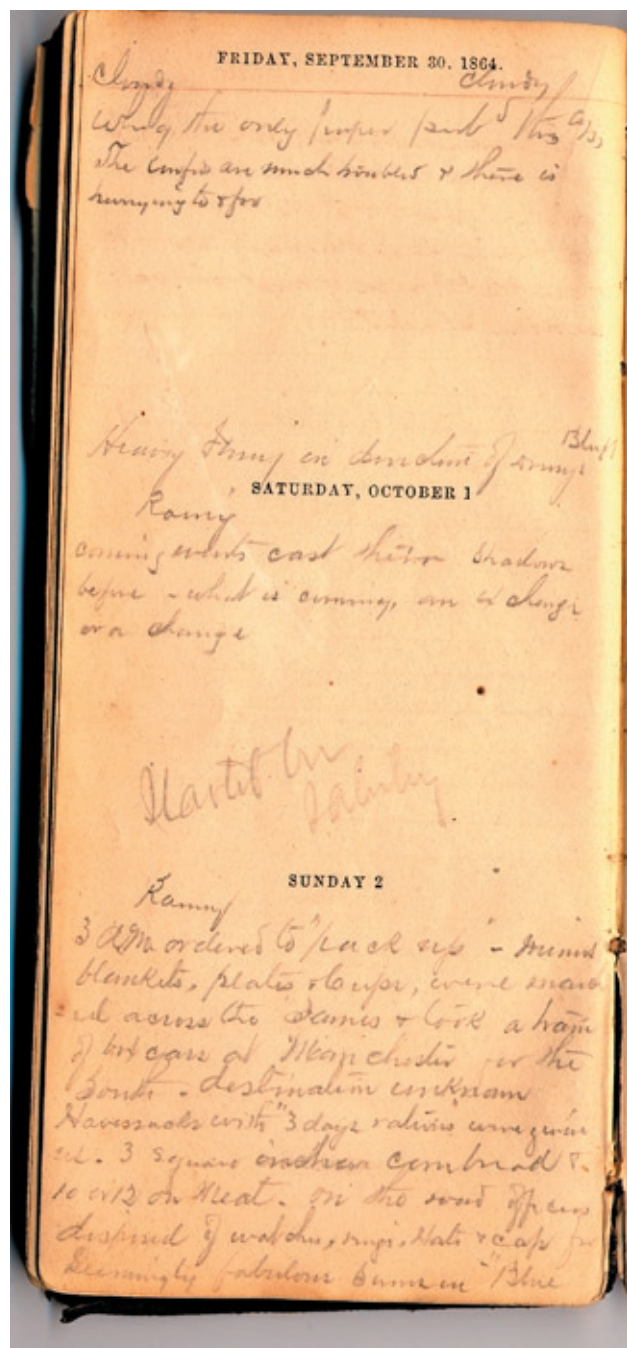 FRIDAY, SEPTEMBER 30. 1864.
Cloudy Cloudy
Whig the only paper pub'd this
The confeds are much troubled & there is
hurrying to & fro
Heavy firing in direction of Drurys Bluff
SATURDAY, OCTOBER 1
Rainy
coming events cast their shadows
before - what is coming, an exchange
or a change
Started for
Salisbury
SUNDAY 2
Rainy
3 AM ordered to "pack up" - minus
blankets, plates & cups, were march
-ed across the James & took a train
of box cars at Manchester for the
South - destination unknown
Haversacks with "3 days rations" were given
us. 3 square inches cornbread &
10 or 12 oz Meat. On the road officers
disposed of watches, rings, Hats & caps for
Seemingly fabulous sums in "Blue